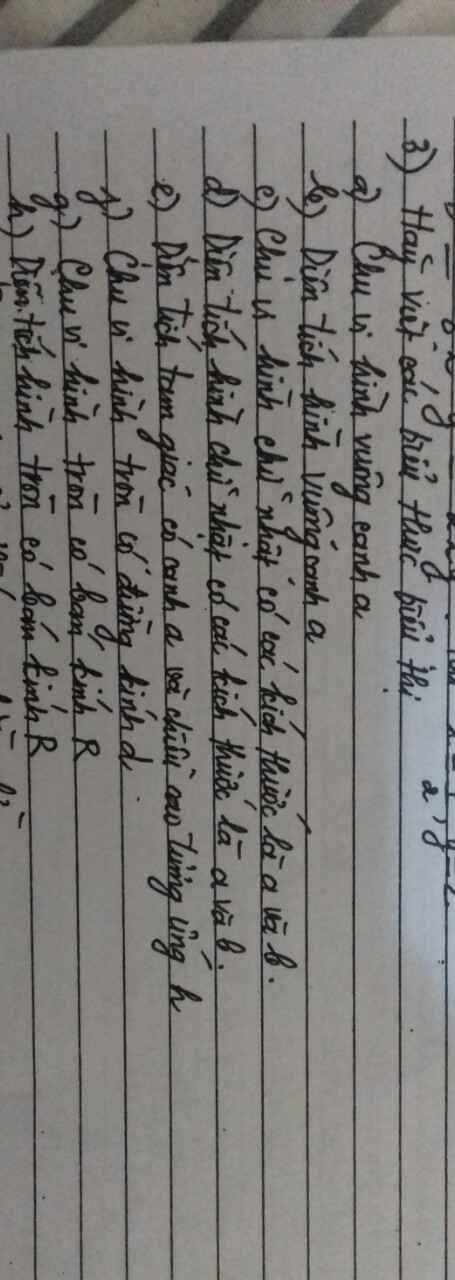 3) Hãy viết các biểu thức biểu thị
a) Chu vi hình vuông cạnh a
b) Diện tích hình vuông cạnh a
c) Chu vi hình chữ nhật có các kích thước là a và b.
d) Diện tích hình chữ nhật có các kích thước là a và b.
e) Diện tích tam giác có cạnh a và chiều cao tương ứng h
f) Chu vi hình tròn có đường kính d.
g) Chu vi hình tròn có bán kính R
h) Diện tích hình tròn có bán kính R